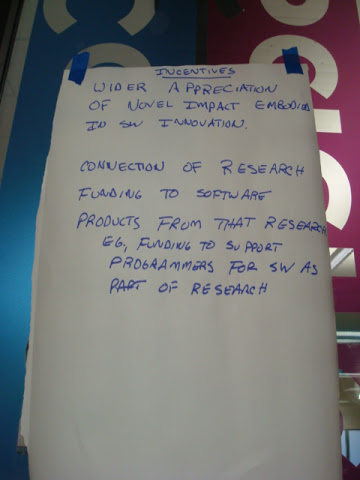 INCENTIVES
WIDER APPRECIATION
OF NOVEL IMPACT EMBODIED
IN SW INNOVATION.
CONNECTION OF RESEARCH
FUNDING TO SOFTWARE
PRODUCTS FROM THAT RESEARCH
EG, FUNDING TO SUPPORT
PROGRAMMERS FOR SW AS
PART OF RESEARCH